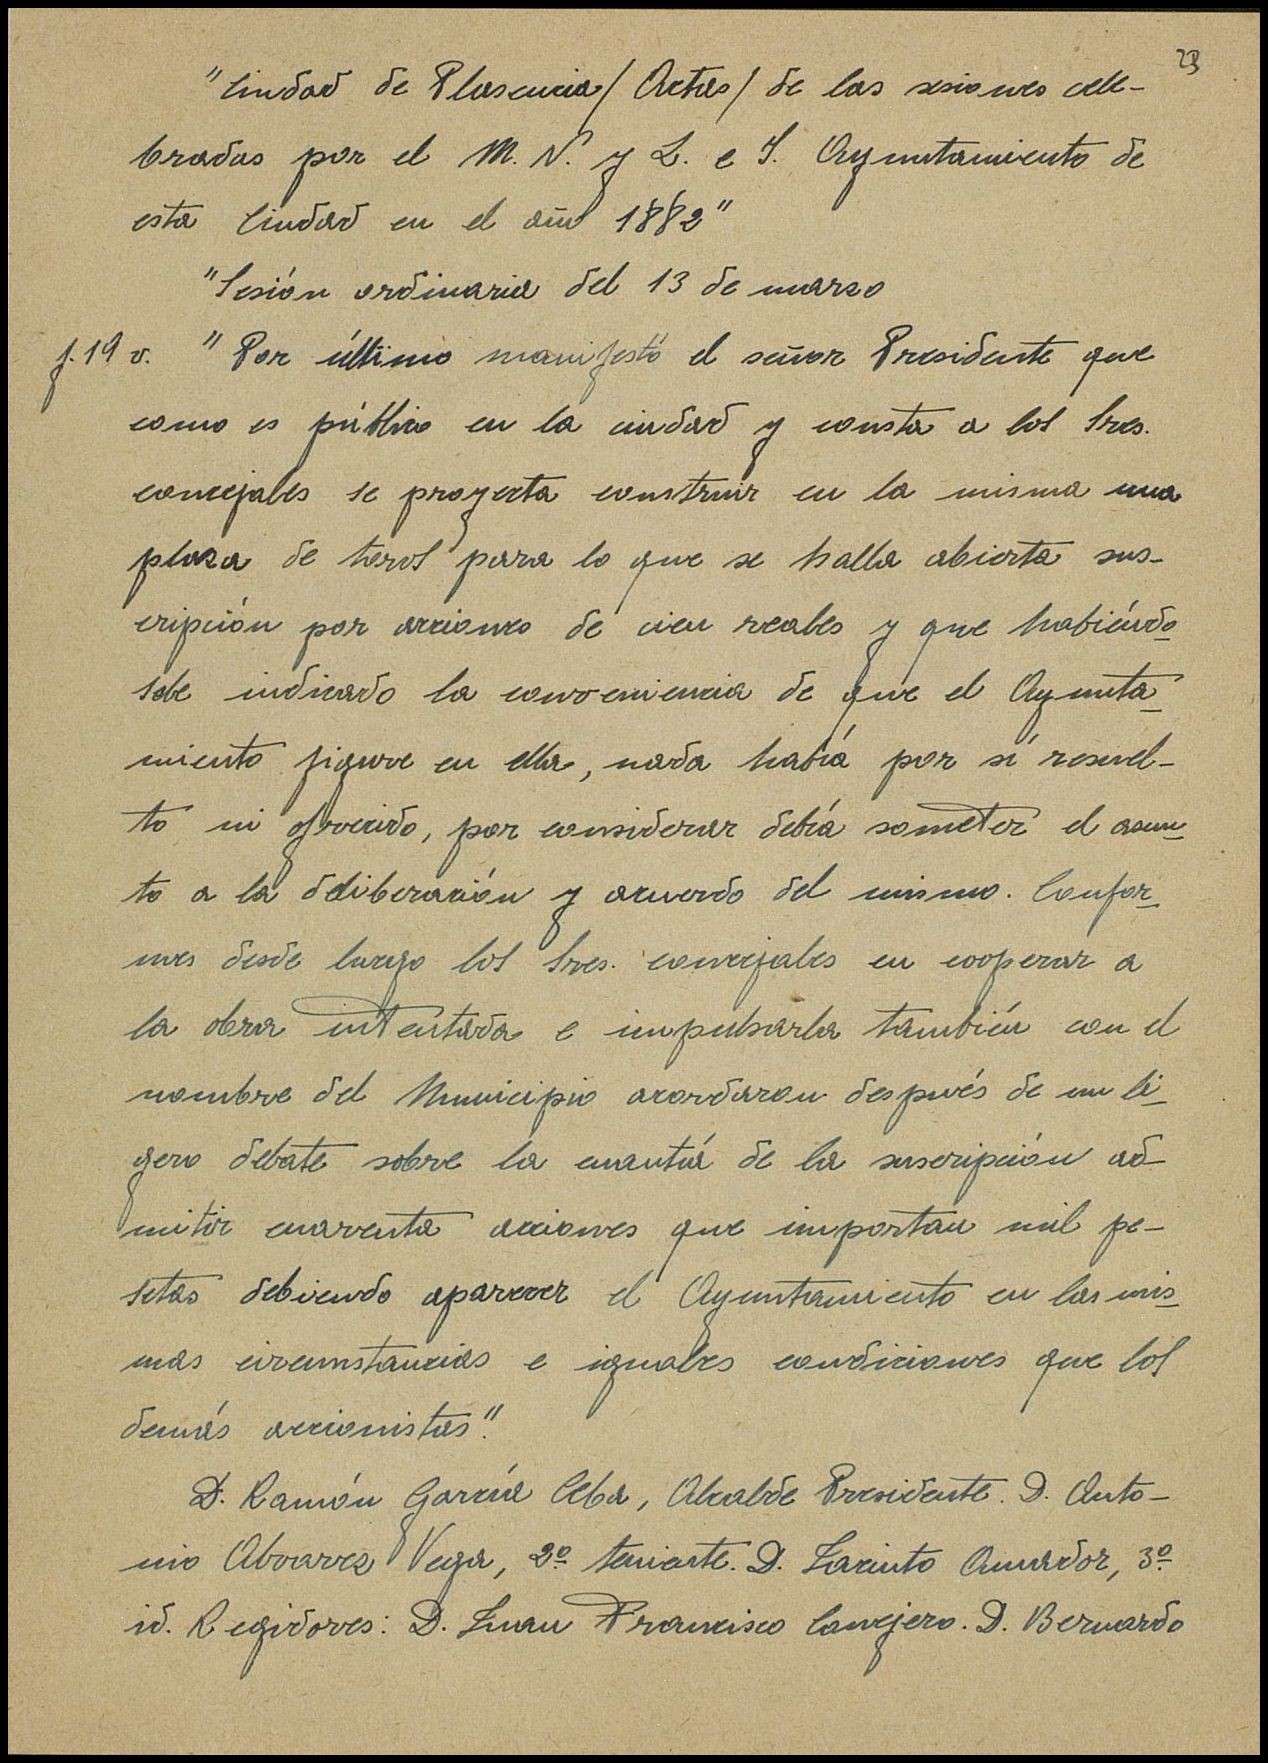 23
"Ciudad de Plasencia/ Actas/ de las sesiones cele-
bradas por el M. N. y L. e I. Ayuntamiento de
esta Ciudad en el año 1882"
"Sesión ordinaria del 13 de marzo
f. 19 v. "Por último manifestó el señor Presidente que
como es público en la ciudad y consta a los Sres.
concejales se proyecta construir en la misma una
plaza de toros para lo que se halla abierta sus-
cripción por acciones de cien reales y que habiéndo
sele indicado la conveniencia de que el Ayunta_
miento figure en ella, nada había por sí resuel-
to ni ofrecido, por considerar debía someter el asun_
to a la deliberación y acuerdo del mismo. Confor_
mes desde luego los Sres. concejales en cooperar a
la obra intentada e impulsarla también con el
nombre del Municipio acordaron después de un li_
gero debate sobre la cuantía de la suscripción ad_
mitir cuarenta acciones que importan mil pe-
setas debiendo aparecer el Ayuntamiento en las mis_
mas circunstancias e iguales condiciones que los
demás accionistas".
D. Ramón García Ceba, Alcalde Presidente. D. Anto-
nio Alvarez Vega, 2º teniente. D. Jacinto Amador, 3º
id. Regidores: D. Juan Francisco Conejero. D. Bernardo